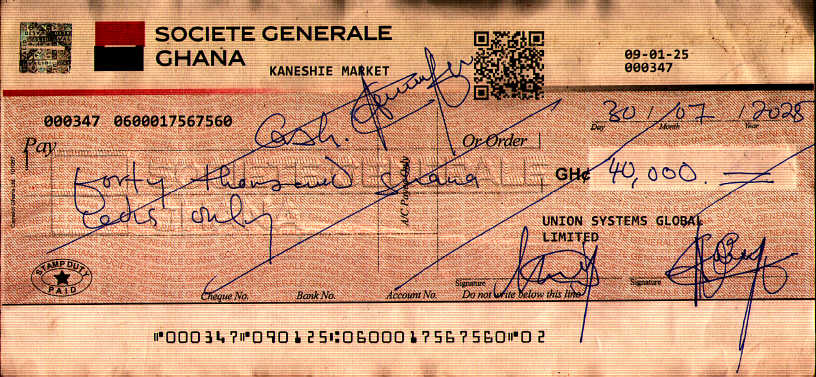 SOCIETE GENERALE
GHANA
KANESHIE MARKET
09-01-25
000347
000347 0600017567560
30 / 07 / 2025
Day Month Year
Pay Cash. Or Order
Forty thousand Ghana
cedis only
GH¢ 40,000.
A/C Payee Only
UNION SYSTEMS GLOBAL
LIMITED
STAMP DUTY
PAID
Signature Signature
Cheque No. Bank No. Account No. Do not write below this line
⑈000347⑈090125⑆0600017567560⑈02